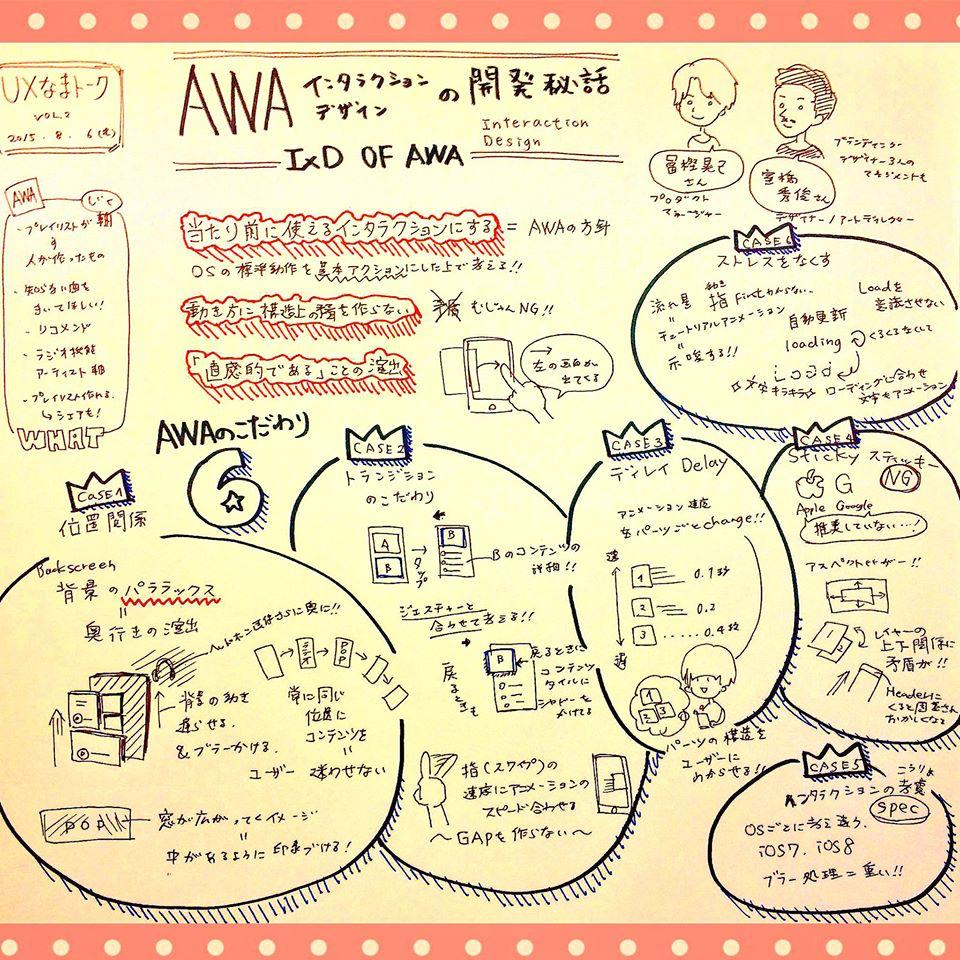 UXなまトーク
VOL.2
2015.8.6(木)
AWA インタラクション
デザイン
の開発秘話
Interaction
Design
IxD OF AWA
冨樫晃己
さん
プロダクト
マネージャー
室橋
秀俊さん
デザイナー/アートディレクター
ブランディング
デザイナー3人の
マネジメントも
AWA
じく
・プレイリストが軸
す
人が作ったもの
・知らない曲を
きいてほしい!
・リコメンド
・ラジオ機能
アーティスト軸
・プレイリスト作れる。
↳シェアも!
WHAT
当たり前に使えるインタラクションにする = AWAの方針
OSの標準動作を基本アクションにした上で考える!!
動き方に構造上の矛盾を作らない
むじゅんNG!!
「直感的である」ことの演出
→
左の画面が
出てくる
AWAのこだわり
6
CASE1
位置関係
Backscreen
背景のパララックス
=
奥行きの演出
背景の動き
遅らせる。
&ブラーかける。
ラジオ
POP
常に同じ
位置に
コンテンツを
=
ユーザー 迷わせない
窓が広がってくイメージ
=
中があるように印象づける!
CASE2
トランジション
のこだわり
A
B
→
タップ
B
Bのコンテンツの
詳細!!
ジェスチャーと
合わせて考える!!
戻るときも
B
戻るときに
コンテンツ
タイルに
シャドーを
かけてる
指(スワイプ)の
速度にアニメーションの
スピード合わせる
〜GAPを作らない〜
CASE3
ディレイ Delay
アニメーション速度
をパーツごとchange!!
速
1 0.1秒
2 0.2
3 ...... 0.4秒
遅
1
2 3
パーツの構造を
ユーザーに
わからせる!!
CASE4
Sticky スティッキー
NG
Apple Google
推奨していない…!
アスペクト比がー!!
1
2
レイヤーの
上下関係に
矛盾が!!
Headerに
くると
おかしくなる
CASE5
こうりょ
インタラクションの考慮
spec
OSごとに考え違う.
iOS7. iOS8
ブラー処理=重い!!
CASE6
ストレスをなくす
流れ星
=
チュートリアルアニメーション
=
示唆する!!
動き
指 Firstわからない。
Loadを
意識させない
自動更新
loading くるくるなくして
Load
キラキラ ローディングに合わせ
文字もアニメーション